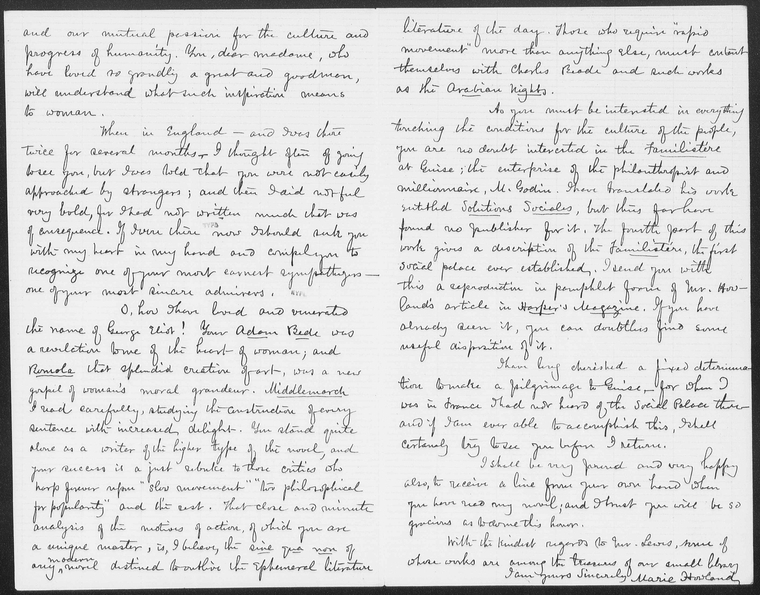 and our mutual passion for the culture and
progress of humanity. You, dear madame, who
have loved so grandly a great and good man,
will understand what such inspiration means
to woman.
When in England — and I was there
twice for several months — I thought often of going
to see you, but I was told that you were not easily
approached by strangers; and then I did not feel
very bold, for I had not written much that was
of consequence. If I were there now I should seek you
with my heart in my hand and compel you to
recognize one of your most earnest sympathizers —
one of your most sincere admirers.
O, how I have loved and venerated
the name of George Eliot! Your Adam Bede was
a revelation to me of the heart of woman; and
Romola that splendid creation of art, was a new
gospel of woman's moral grandeur. Middlemarch
I read carefully, studying the construction of every
sentence with increased delight. You stand quite
alone as a writer of the higher type of the novel, and
your success is a just rebuke to those critics who
harp forever upon "slow movement" "too philosophical
for popularity" and the rest. That close and minute
analysis of the motives of action, of which you are
a unique master, is, I believe, the sine qua non of
any modern novel destined to outlive the Ephemeral literature
literature of the day. Those who require "rapid
movement" more than anything else, must content
themselves with Charles Reade and such works
as the Arabian Nights.
As you must be interested in everything
touching the conditions for the culture of the people,
you are no doubt interested in the Familistère
at Guise; the enterprise of the philanthropist and
millionnaire, M. Godin. I have translated his work
entitled Solutions Sociales, but thus far have
found no publisher for it. The fourth part of this
work gives a description of the Familistère, the first
Social palace ever established. I send you with
this a reproduction in pamphlet form of Mr. How-
land's article in Harper's Magazine. If you have
already seen it, you can doubtless find some
useful disposition of it.
I have long cherished a fixed determina-
tion to make a pilgrimage to Guise, — for when I
was in France I had not heard of the Social Palace there —
and if I am ever able to accomplish this, I shall
certainly try to see you before I return.
I shall be very proud and very happy
also, to receive a line from your own hand when
you have read my novel; and I trust you will be so
gracious as to do me this honor.
With the kindest regards to Mr. Lewes, some of
whose works are among the treasures of our small library
I am yours Sincerely Marie Howland